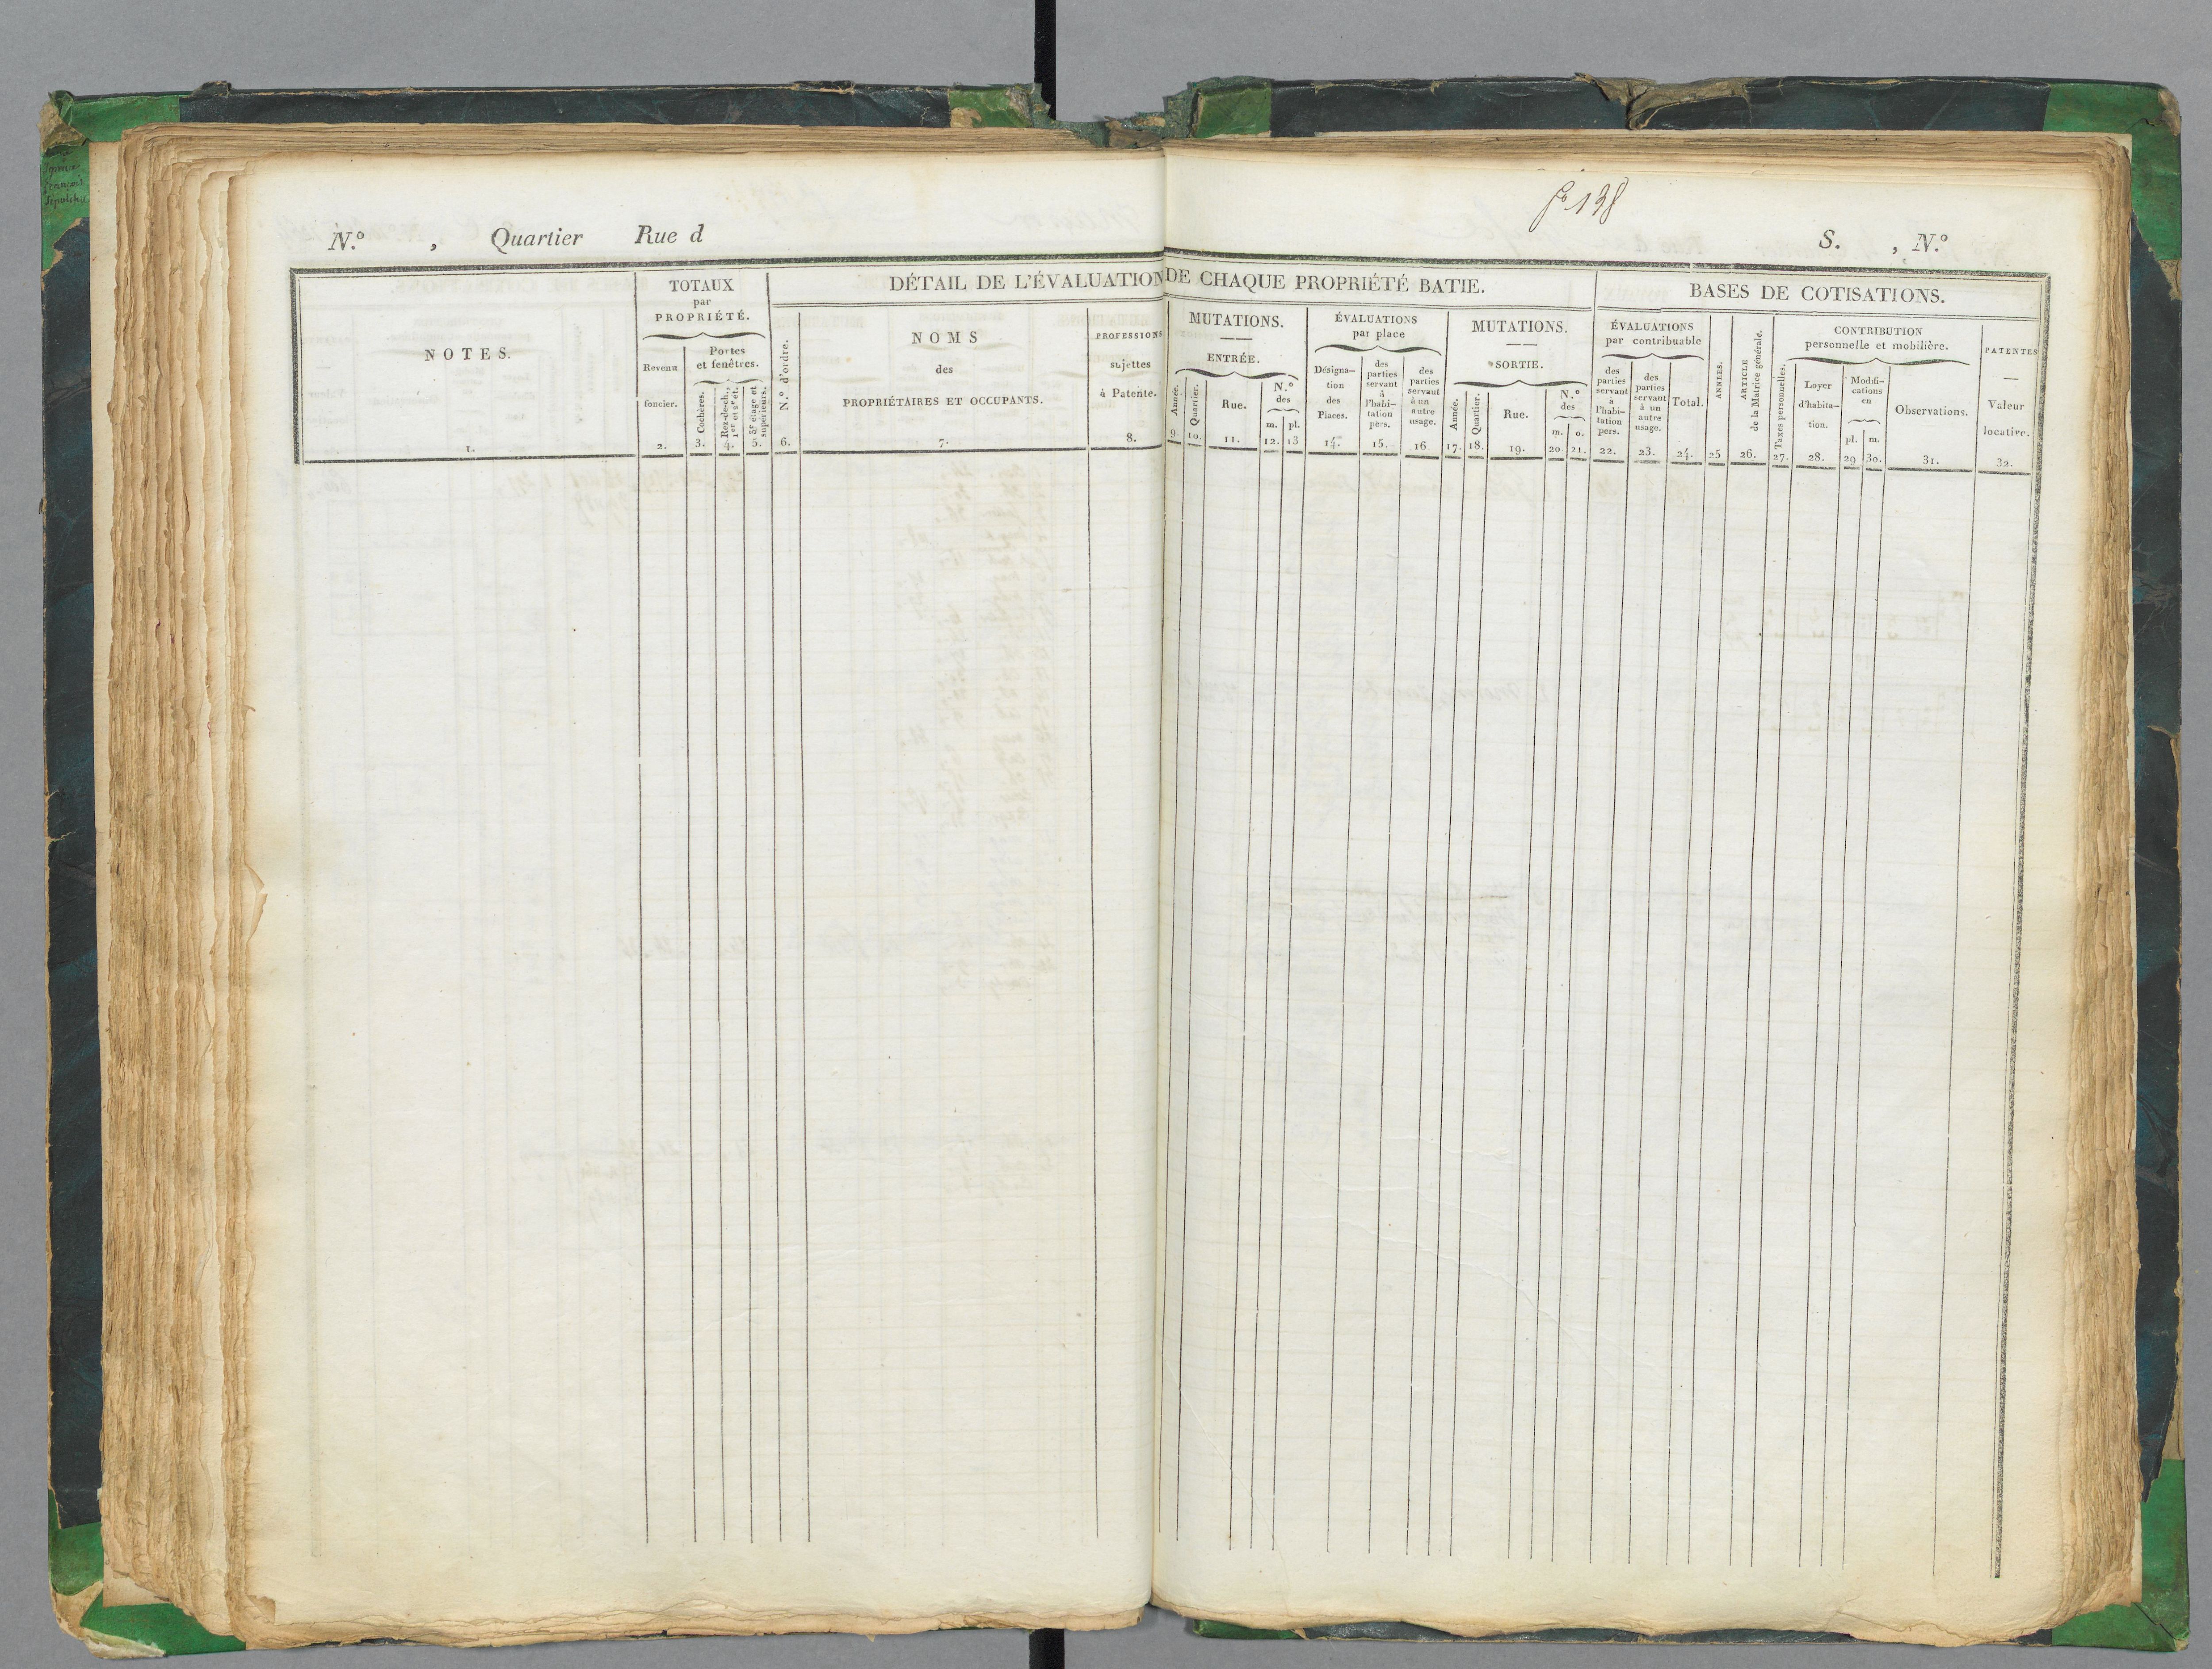 fo 138
N.o , Quartier Rue d S. , N.o
DÉTAIL DE L'ÉVALUATION DE CHAQUE PROPRIÉTÉ BATIE.
BASES DE COTISATIONS.
NOTES.
1.
TOTAUX
par
PROPRIÉTÉ.
Revenu
foncier.
2.
Portes
et fenêtres.
Cochères.
3.
Rez-de-ch.,
1er et 2e ét.
4.
3e étage et
supérieurs.
5.
N.o d'ordre.
6.
NOMS
des
PROPRIÉTAIRES ET OCCUPANTS.
7.
PROFESSIONS
sujettes
à Patente.
8.
MUTATIONS.
ENTRÉE.
Année.
9.
Quartier.
10.
Rue.
11.
N.o
des
m. pl.
12. 13
ÉVALUATIONS
par place
Désigna-
tion
des
Places.
14.
des
parties
servant
à
l'habi-
tation
pers.
15.
des
parties
servant
à un
autre
usage.
16
MUTATIONS.
SORTIE.
Année.
17.
Quartier.
18.
Rue.
19.
N.o
des
m. o.
20. 21.
ÉVALUATIONS
par contribuable
des
parties
servant
à
l'habi-
tation
pers.
22.
des
parties
servant
à un
autre
usage.
23.
Total.
24.
ANNÉES.
25
ARTICLE
de la Matrice générale.
26.
CONTRIBUTION
personnelle et mobilière.
Taxes personnelles.
27.
Loyer
d'habita-
tion.
28.
Modifi-
cations
en
pl. m.
29 30.
Observations.
31.
PATENTES
Valeur
locative.
32.